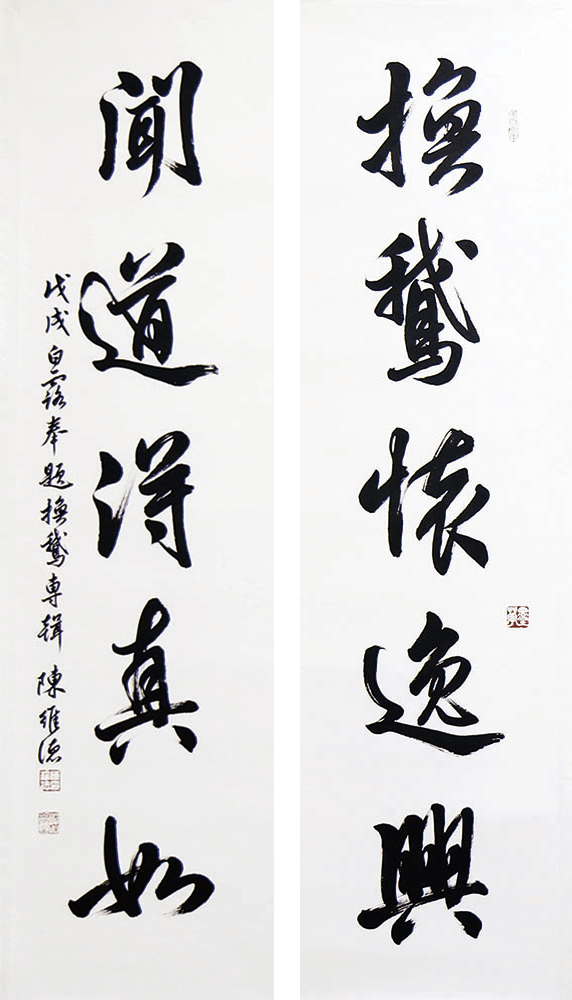 換鵝懷逸興
聞道得真如
戊戌白露奉題換鵞專輯 陳維德